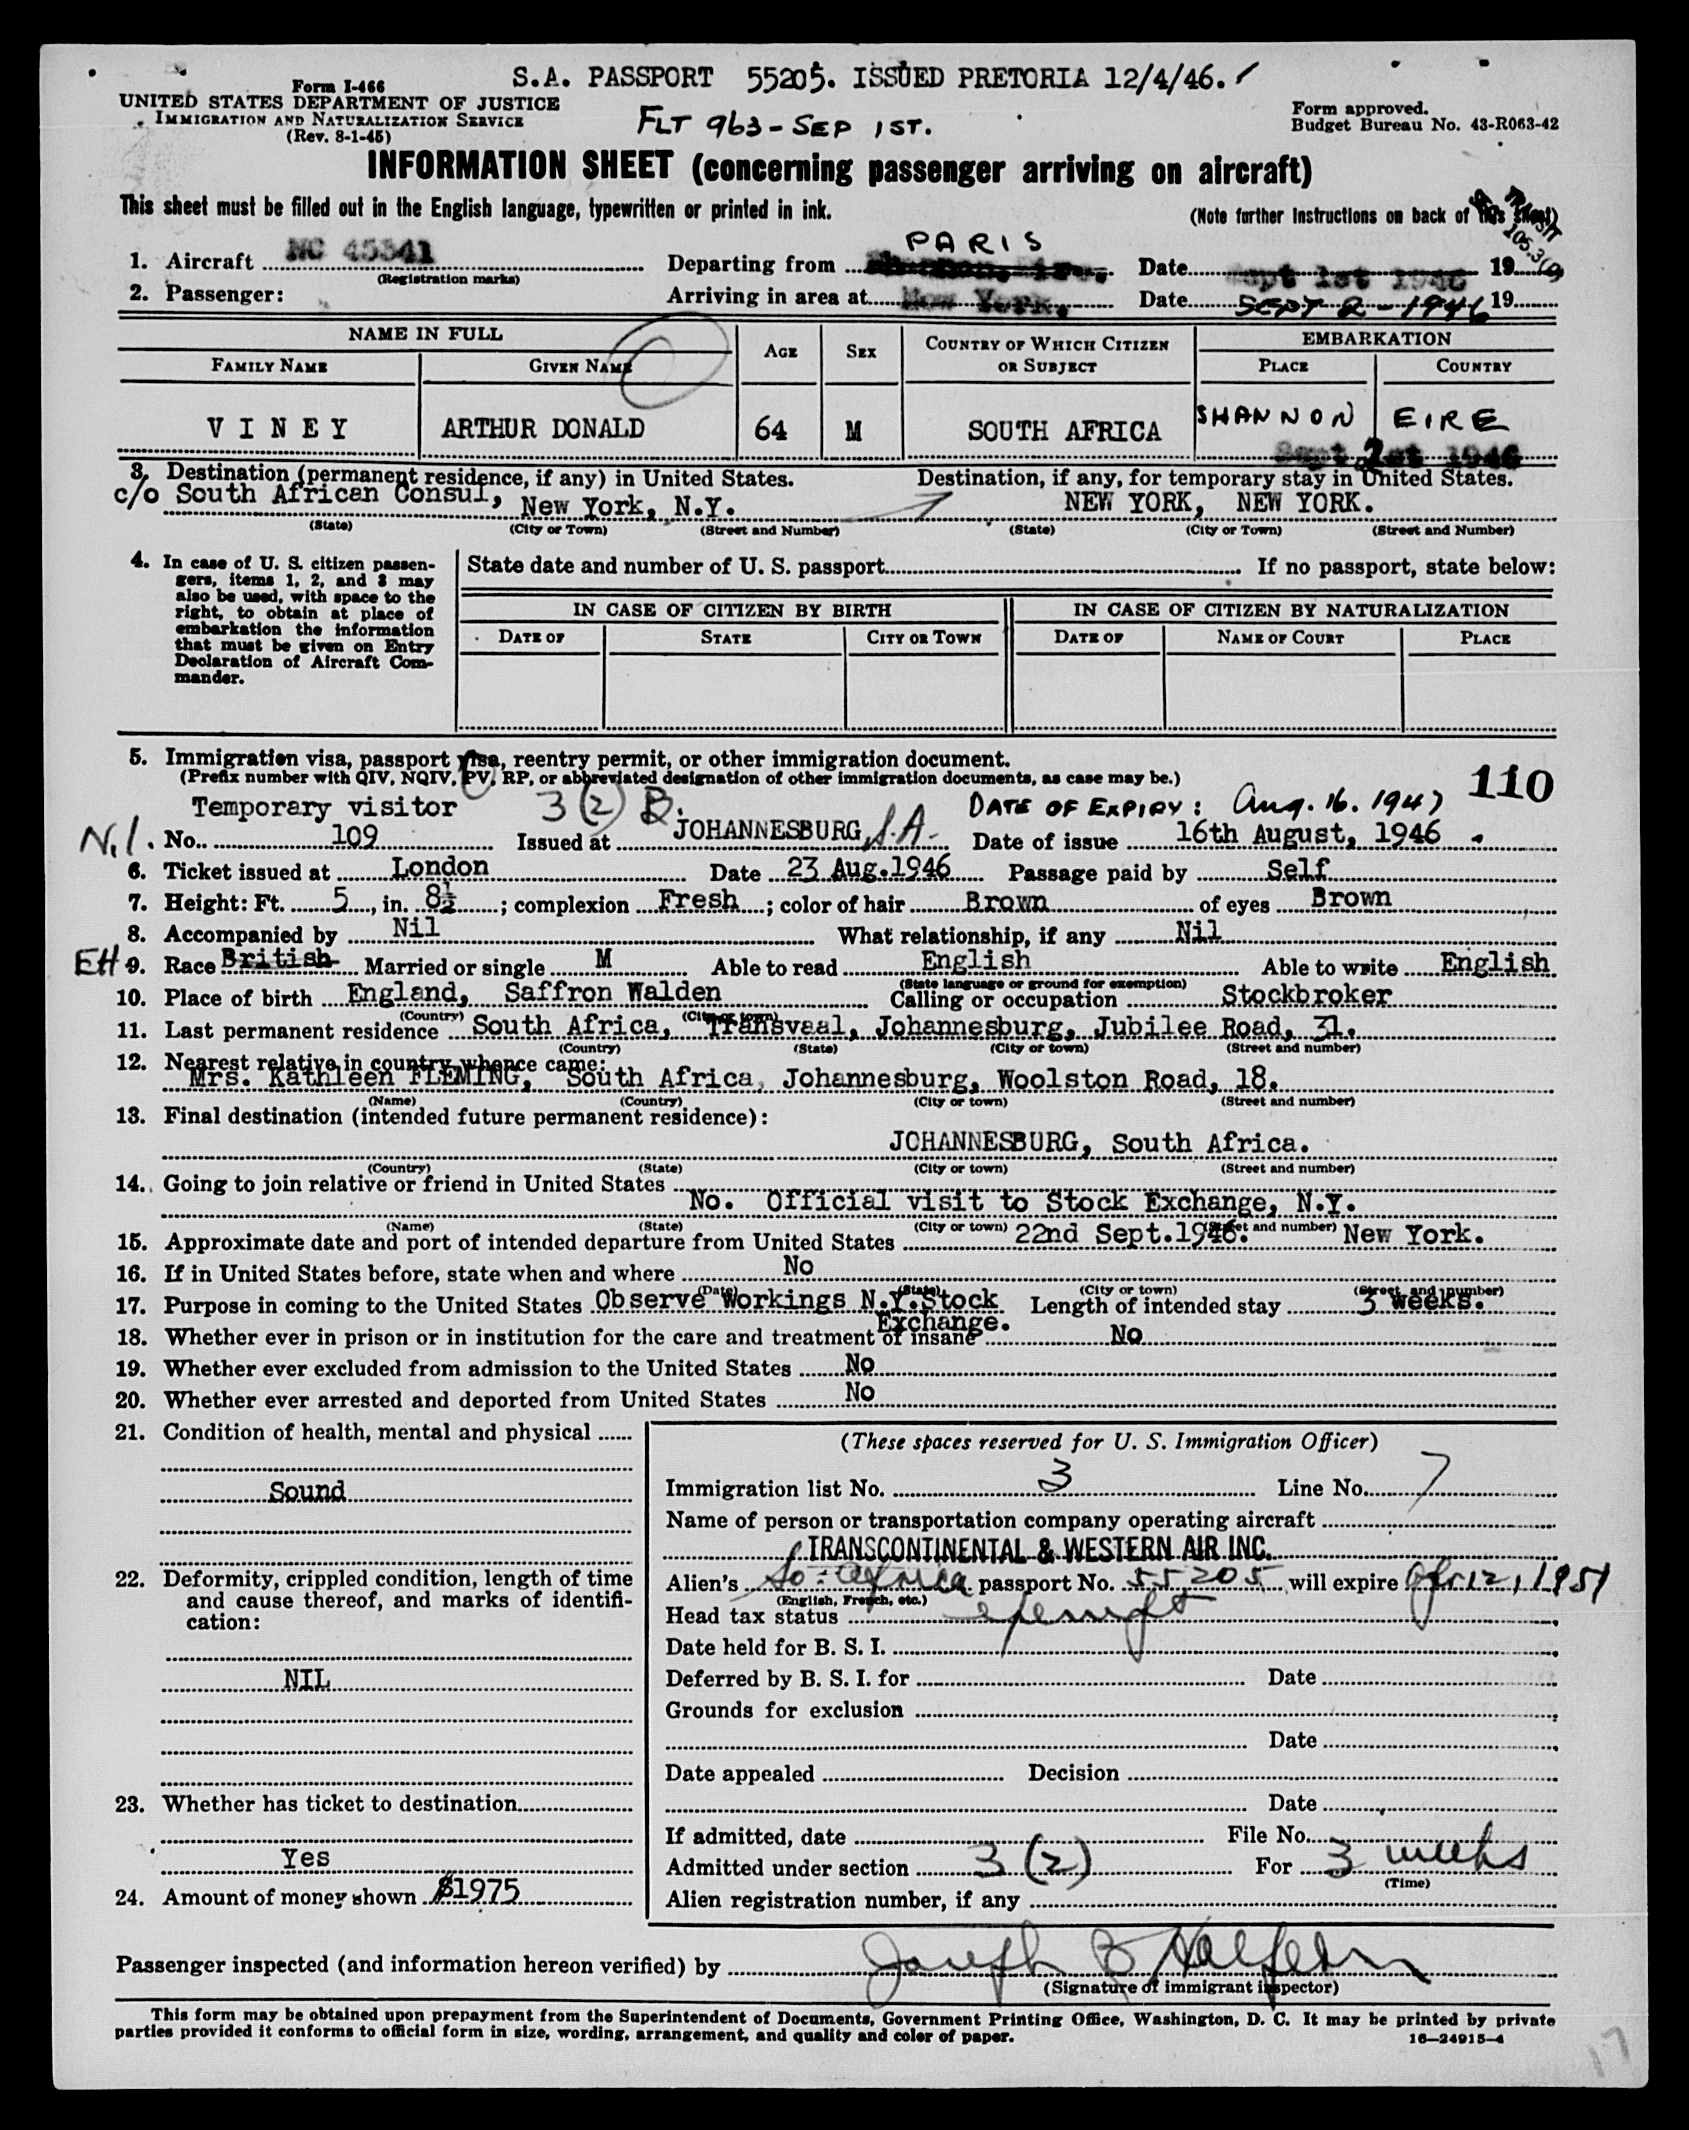 Form I-466
S.A. PASSPORT 55205. ISSUED PRETORIA 12/4/46. /
UNITED STATES DEPARTMENT OF JUSTICE
IMMIGRATION AND NATURALIZATION SERVICE
(Rev. 8-1-45)
FLT 963 - SEP 1ST.
Form approved.
Budget Bureau No. 43-R063-42
INFORMATION SHEET (concerning passenger arriving on aircraft)
This sheet must be filled out in the English language, typewritten or printed in ink.
(Note further instructions on back of this sheet)
TRANSIT
SEC 105.3(
1. Aircraft NC 45341 Departing from PARIS Date Sept 1st 1946 19
(Registration marks)
2. Passenger: Arriving in area at New York. Date SEPT 2 - 1946 19
NAME IN FULL AGE SEX COUNTRY OF WHICH CITIZEN OR SUBJECT EMBARKATION
FAMILY NAME GIVEN NAME PLACE COUNTRY
VINEY ARTHUR DONALD 64 M SOUTH AFRICA SHANNON EIRE
Sept 2st 1946
3. Destination (permanent residence, if any) in United States. Destination, if any, for temporary stay in United States.
c/o South African Consul, New York, N.Y. NEW YORK, NEW YORK.
(State) (City or Town) (Street and Number) (State) (City or Town) (Street and Number)
4. In case of U. S. citizen passen-
gers, items 1, 2, and 3 may
also be used, with space to the
right, to obtain at place of
embarkation the information
that must be given on Entry
Declaration of Aircraft Com-
mander.
State date and number of U. S. passport If no passport, state below:
IN CASE OF CITIZEN BY BIRTH IN CASE OF CITIZEN BY NATURALIZATION
DATE OF STATE CITY OR TOWN DATE OF NAME OF COURT PLACE
5. Immigration visa, passport visa, reentry permit, or other immigration document.
(Prefix number with QIV, NQIV, PV, RP, or abbreviated designation of other immigration documents, as case may be.)
110
Temporary visitor 3(2) B. DATE OF EXPIRY: Aug. 16. 1947
N.I. No. 109 Issued at JOHANNESBURG, S.A. Date of issue 16th August, 1946
6. Ticket issued at London Date 23 Aug.1946 Passage paid by Self
7. Height: Ft. 5, in. 8½; complexion Fresh; color of hair Brown of eyes Brown
8. Accompanied by Nil What relationship, if any Nil
EH 9. Race British Married or single M Able to read English Able to write English
(State language or ground for exemption)
10. Place of birth England, Saffron Walden Calling or occupation Stockbroker
(Country) (City or town)
11. Last permanent residence South Africa, Transvaal, Johannesburg, Jubilee Road, 31.
(Country) (State) (City or town) (Street and number)
12. Nearest relative in country whence came:
Mrs. Kathleen FLEMING, South Africa, Johannesburg, Woolston Road, 18.
(Name) (Country) (City or town) (Street and number)
13. Final destination (intended future permanent residence):
JOHANNESBURG, South Africa.
(Country) (State) (City or town) (Street and number)
14. Going to join relative or friend in United States
No. Official visit to Stock Exchange, N.Y.
(Name) (State) (City or town) (Street and number)
15. Approximate date and port of intended departure from United States 22nd Sept.1946. New York.
16. If in United States before, state when and where No
(Date) (State) (City or town) (Street and number)
17. Purpose in coming to the United States Observe Workings N.Y. Stock Exchange. Length of intended stay 3 weeks.
18. Whether ever in prison or in institution for the care and treatment of insane No
19. Whether ever excluded from admission to the United States No
20. Whether ever arrested and deported from United States No
21. Condition of health, mental and physical
Sound
22. Deformity, crippled condition, length of time
and cause thereof, and marks of identifi-
cation:
NIL
23. Whether has ticket to destination
Yes
24. Amount of money shown $1975
(These spaces reserved for U. S. Immigration Officer)
Immigration list No. 3 Line No. 7
Name of person or transportation company operating aircraft
TRANSCONTINENTAL & WESTERN AIR INC.
Alien's So. Africa passport No. 55205 will expire Apr 12, 1951
(English, French, etc.)
Head tax status exempt
Date held for B. S. I.
Deferred by B. S. I. for Date
Grounds for exclusion
Date
Date appealed Decision
Date
If admitted, date File No.
Admitted under section 3(2) For 3 weeks
(Time)
Alien registration number, if any
Passenger inspected (and information hereon verified) by Joseph B Halfern
(Signature of immigrant inspector)
This form may be obtained upon prepayment from the Superintendent of Documents, Government Printing Office, Washington, D. C. It may be printed by private
parties provided it conforms to official form in size, wording, arrangement, and quality and color of paper.
16—24915-4
17